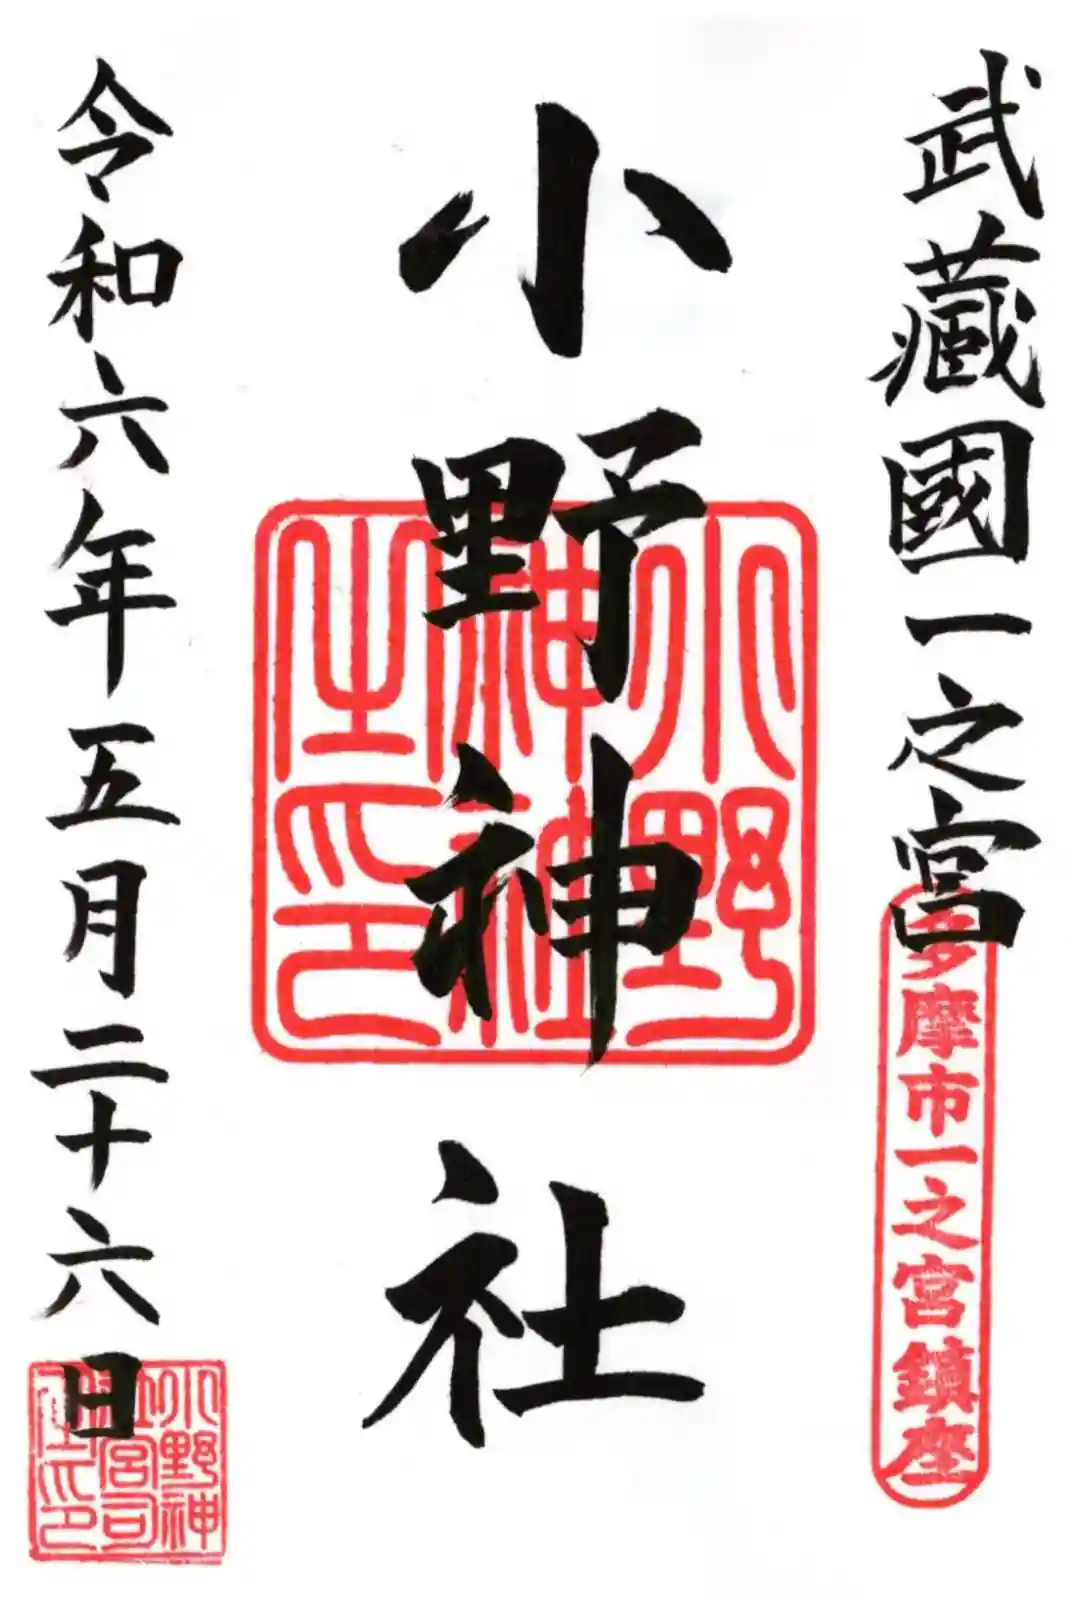 武藏國一之宮
多摩市一之宮鎮座
小野神社
小野
神社
之印
令和六年五月二十六日
小野神
社宮司
之印